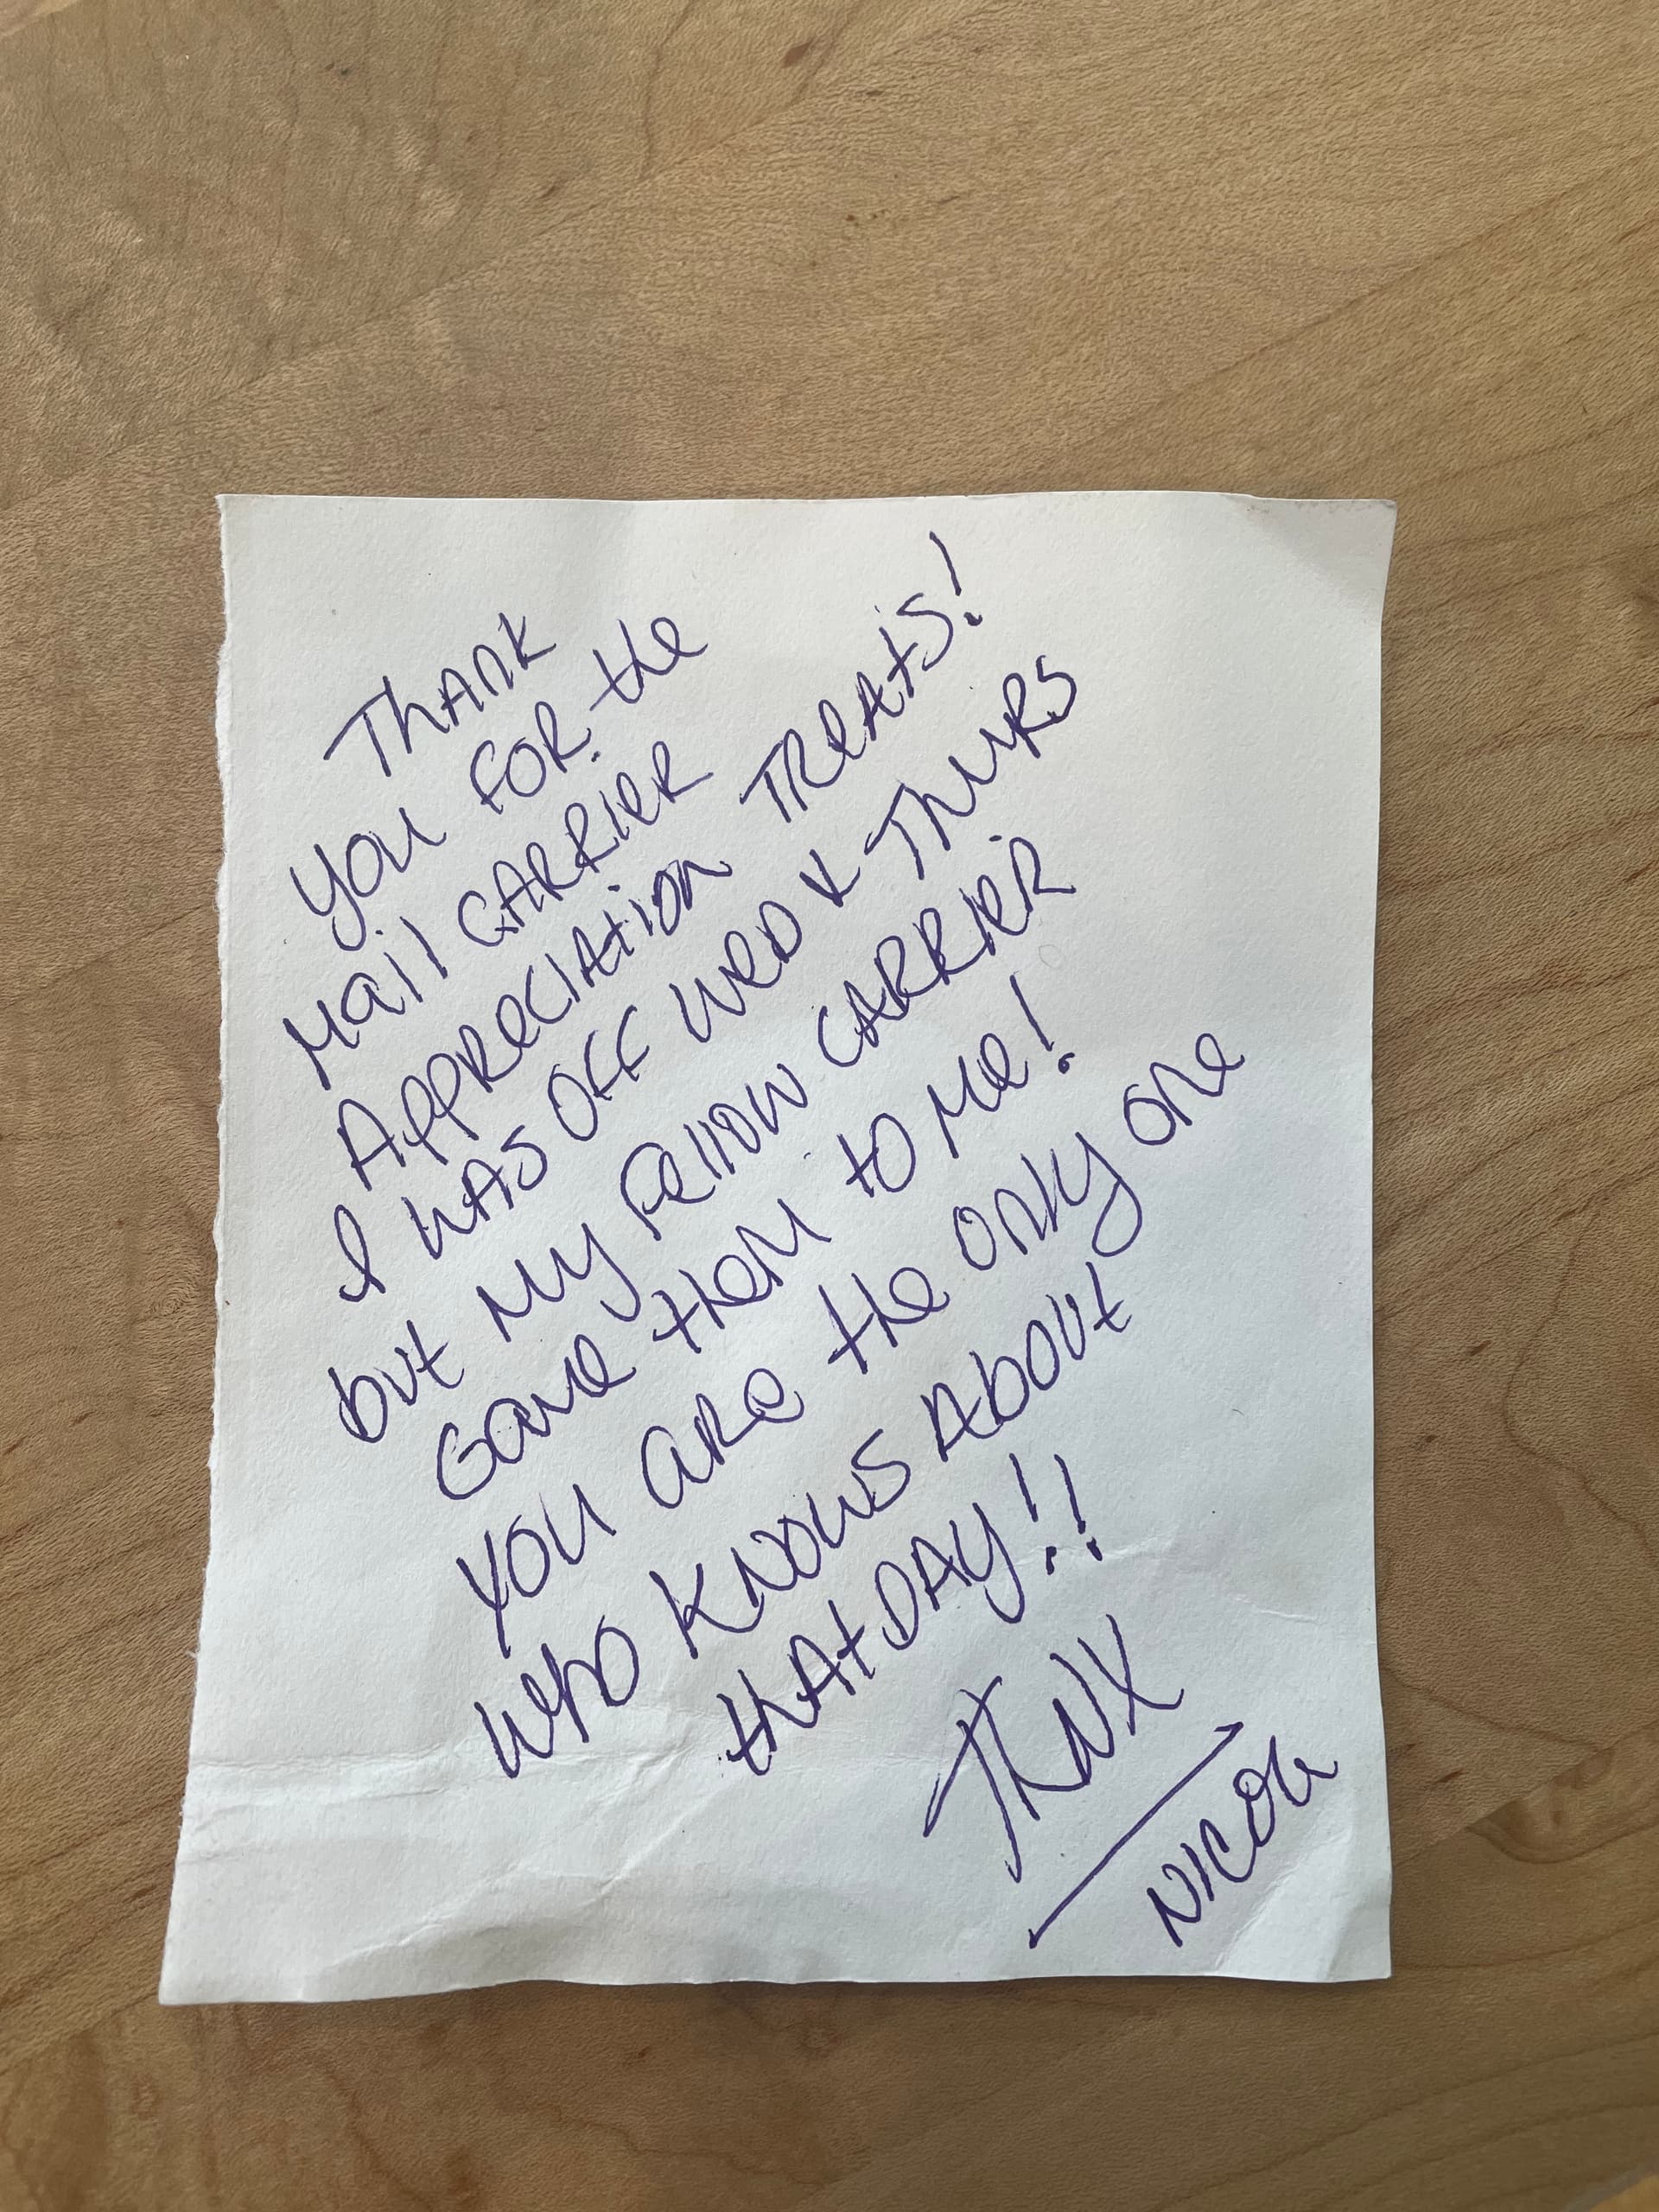 Thank
you for the
Mail Carrier
Appreciation Treats!
I was off Wed & Thurs
but my fellow carrier
gave them to me!
You are the only one
who knows about
that day!!
Thnx
Nicole